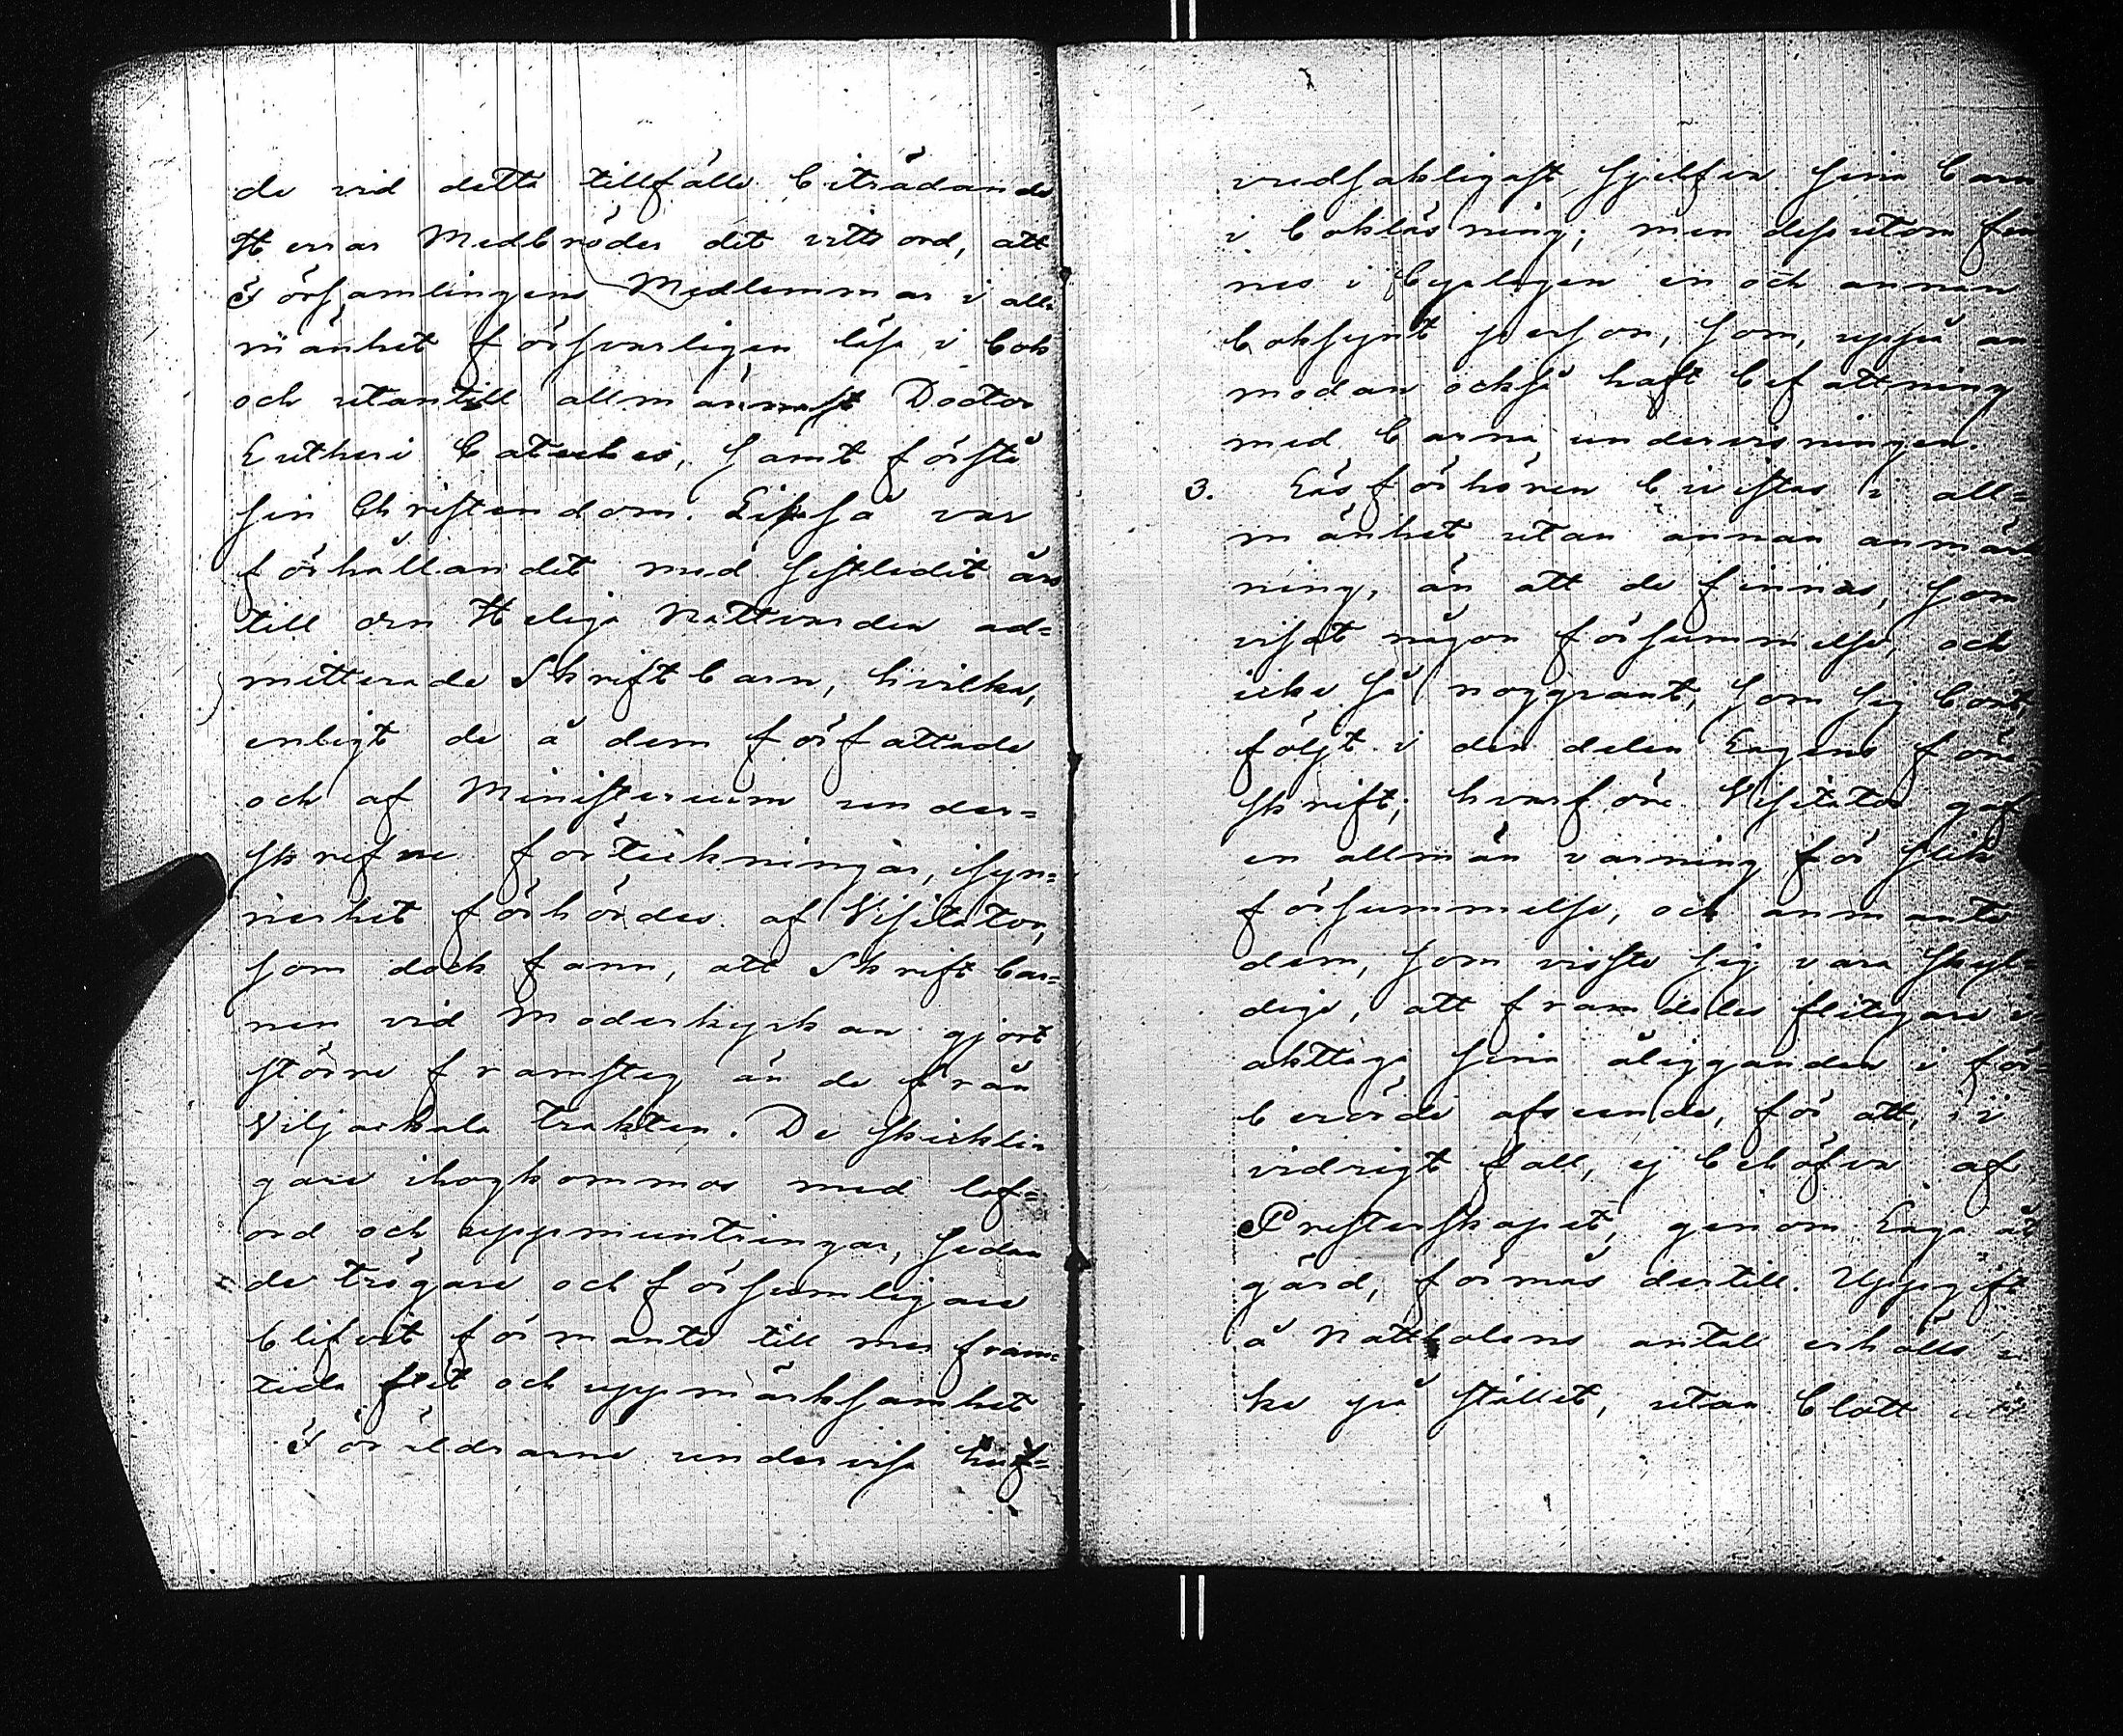 de vid detta tillfälle biträdande
Herrar Medbröder det vittsord, att
Församlingens Medlemmar i all-
mänhet försvarligen läsa i bok
och utantill allmännast Doctor
Lutheri Cateches, samt förstå
sin Christendom. Likaså var
förhållandet med sistledit års
till den Heliga Nattvarden ad-
mitterade Skriftbarn, hvilka,
enligt de å dem författade
och af Ministerium under-
skrefne förteckningar, isyn-
nerhet förhördes af Visitator,
som dock fann, att Skriftbar-
nen vid Moderkyrkan gjort
större framsteg än de från
Viljackala trakten. De skickli-
gare ihogkommos med lof-
ord och uppmuntringar, sedan
de trögare och försumligare
blifvit förmante till mer fram-
tida flit och uppmärksamhet
Föräldrarne undervisa huf-
vudsakligast sjelfva sina barn
i bokläsning; men dessutom fin
nes i byalagen en och annan
boksynt person, som, uppå an
modan också haft befattning
med barna undervisningen.
3. Läsförhören bevistas i all-
mänhet utan annan anmärk
ning, än att de finnas, som
visat någon försummelse, och
icke så noggrant, som sig bort,
följt i den delen Lagens före
skrift; hvarföre Visitator gaf
en allmän varning för slik
försummelse, och anmante
dem, som visste sig vara skyl-
dige, att framdeles flitigare i
akttaga sina åligganden i för-
berörde afseende, för att, i
vidrigt fall, ej behöfva af
Presterskapet, genom Laga åt
gärd, förmås dertill. Uppgift
å Nattholens antal erhölls ic
ke på stället, utan blott